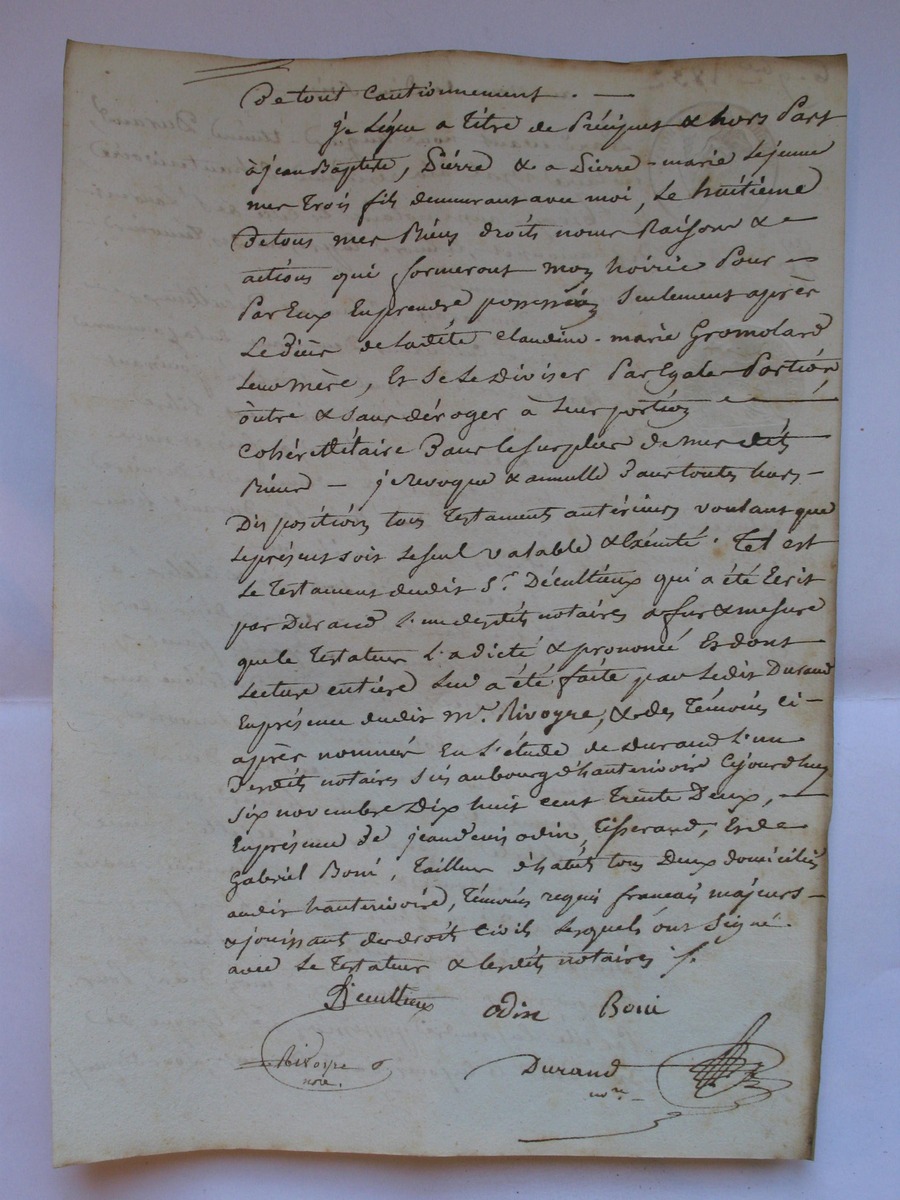 de tout Cautionnement. —
je Légue a titre de Préciput & hors Part
à jean Baptiste, Piérre & a Pierre-marie Le jeune
mes trois fils demeurant avec moi, Le huitième
de tous mes Biens droits noms Raisons &
actions qui formeront mon hoirie Pour —
Par Eux En prendre possession seulement après
Le décès de ladite Claudine-marie Gromolard
Leur mère, Et Se Le diviser Par Egales Portion,
outre & Sans déroger à Leur portion
Cohéréditaire dans le surplus de mes dits
Biens — je révoque & annulle dans toutes leurs —
Dispositions tous Testaments antérieurs voulant que
le présent soit le seul valable & Exécuté. Tel est
Le Testament dudit Sr. Décultieux qui a été Ecrit
par Durand L'un desdits notaires a fur & mesure
que le Testateur L'a dicté & prononcé Et dont
Lecture entière lui a été faite par Ledit Durand
En présence dudit Me. Rivoyre, & des Témoins ci-
après nommés En L'étude de Durand L'un
desdits notaires Sis au bourg d'hauterivoire Cejourdhuy
six novembre dix huit cent Trente deux, —
En présence de jean denis odin, Tisserand, Et de
Gabriel Boni, Tailleur d'habits tous Deux domiciliés
audit hauterivoire, Témoins requis français majeurs —
& jouissant des droits Civils Lesquels ont Signé
avec Le Testateur & lesdits notaires /.
Décultieux odin Boni
Rivoyre
nore.
Durand
nore.